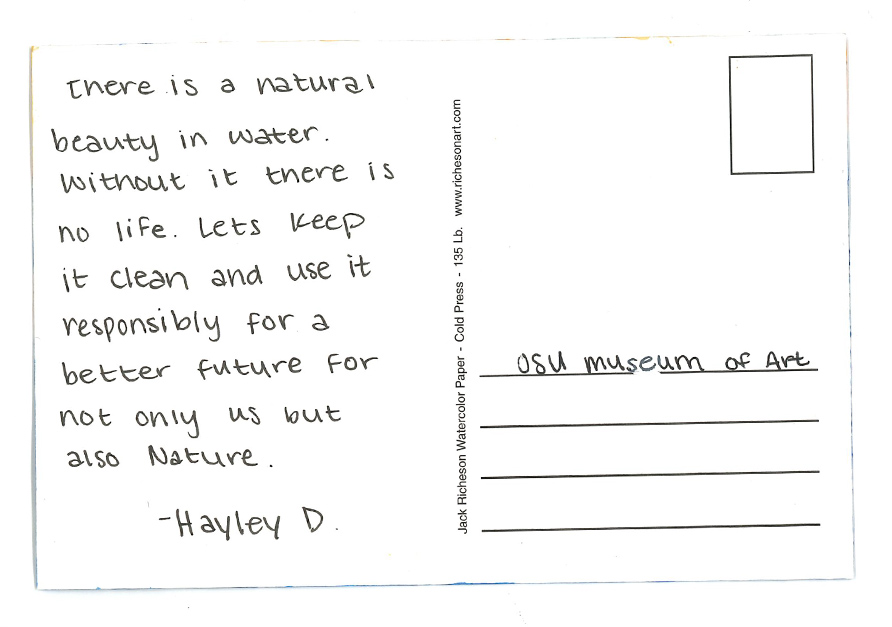 There is a natural
beauty in water.
Without it there is
no life. Lets keep
it clean and use it
responsibly for a
better future for
not only us but
also Nature.
-Hayley D.
Jack Richeson Watercolor Paper - Cold Press - 135 Lb. www.richesonart.com
OSU museum of Art